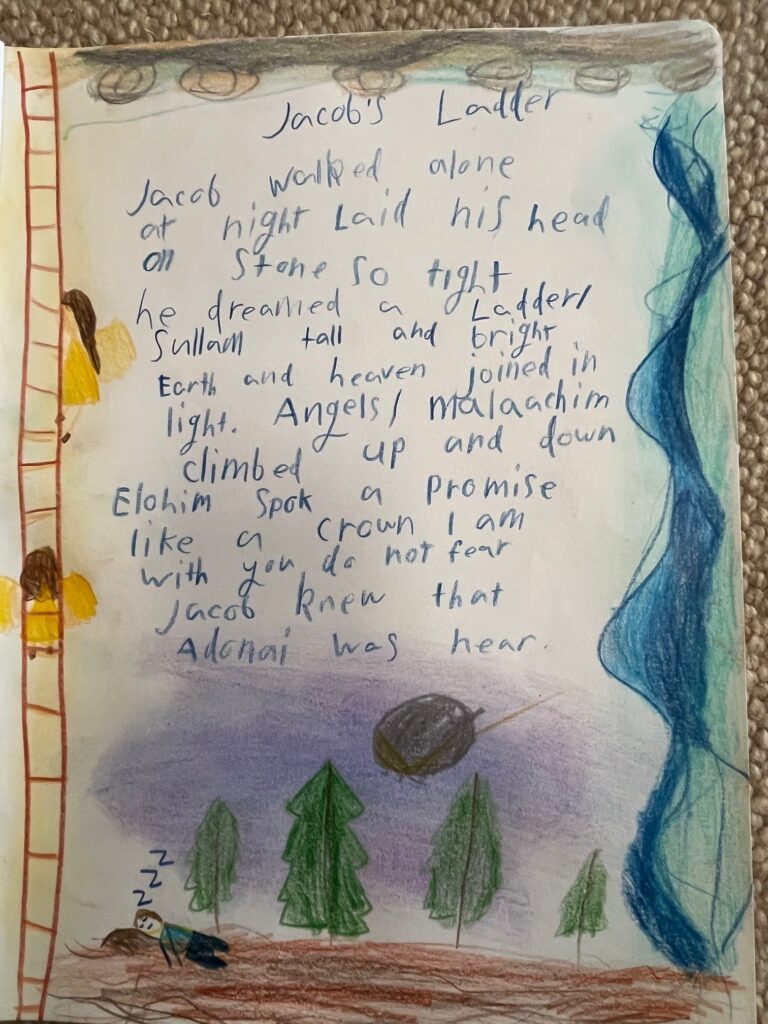 Jacob's Ladder
Jacob walked alone
at night Laid his head
on Stone so tight
he dreamed a Ladder/
Sullam tall and bright
Earth and heaven joined in
light. Angels/ malaachim
climbed up and down
Elohim Spok a promise
like a crown I am
with you do not fear
Jacob knew that
Adonai was hear.
z
z
z